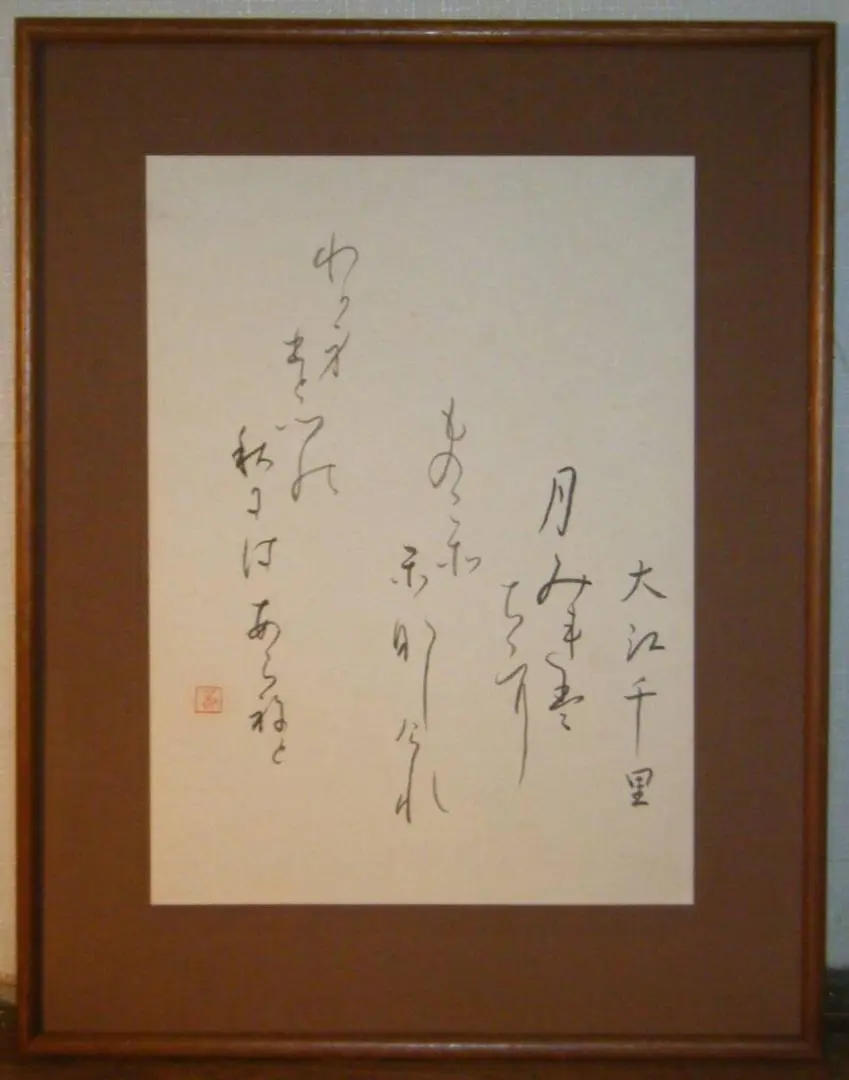 大江千里
月みれは
ちゝに
ものこそ
かなしけれ
わか身
ひとつの
秋にはあらねと